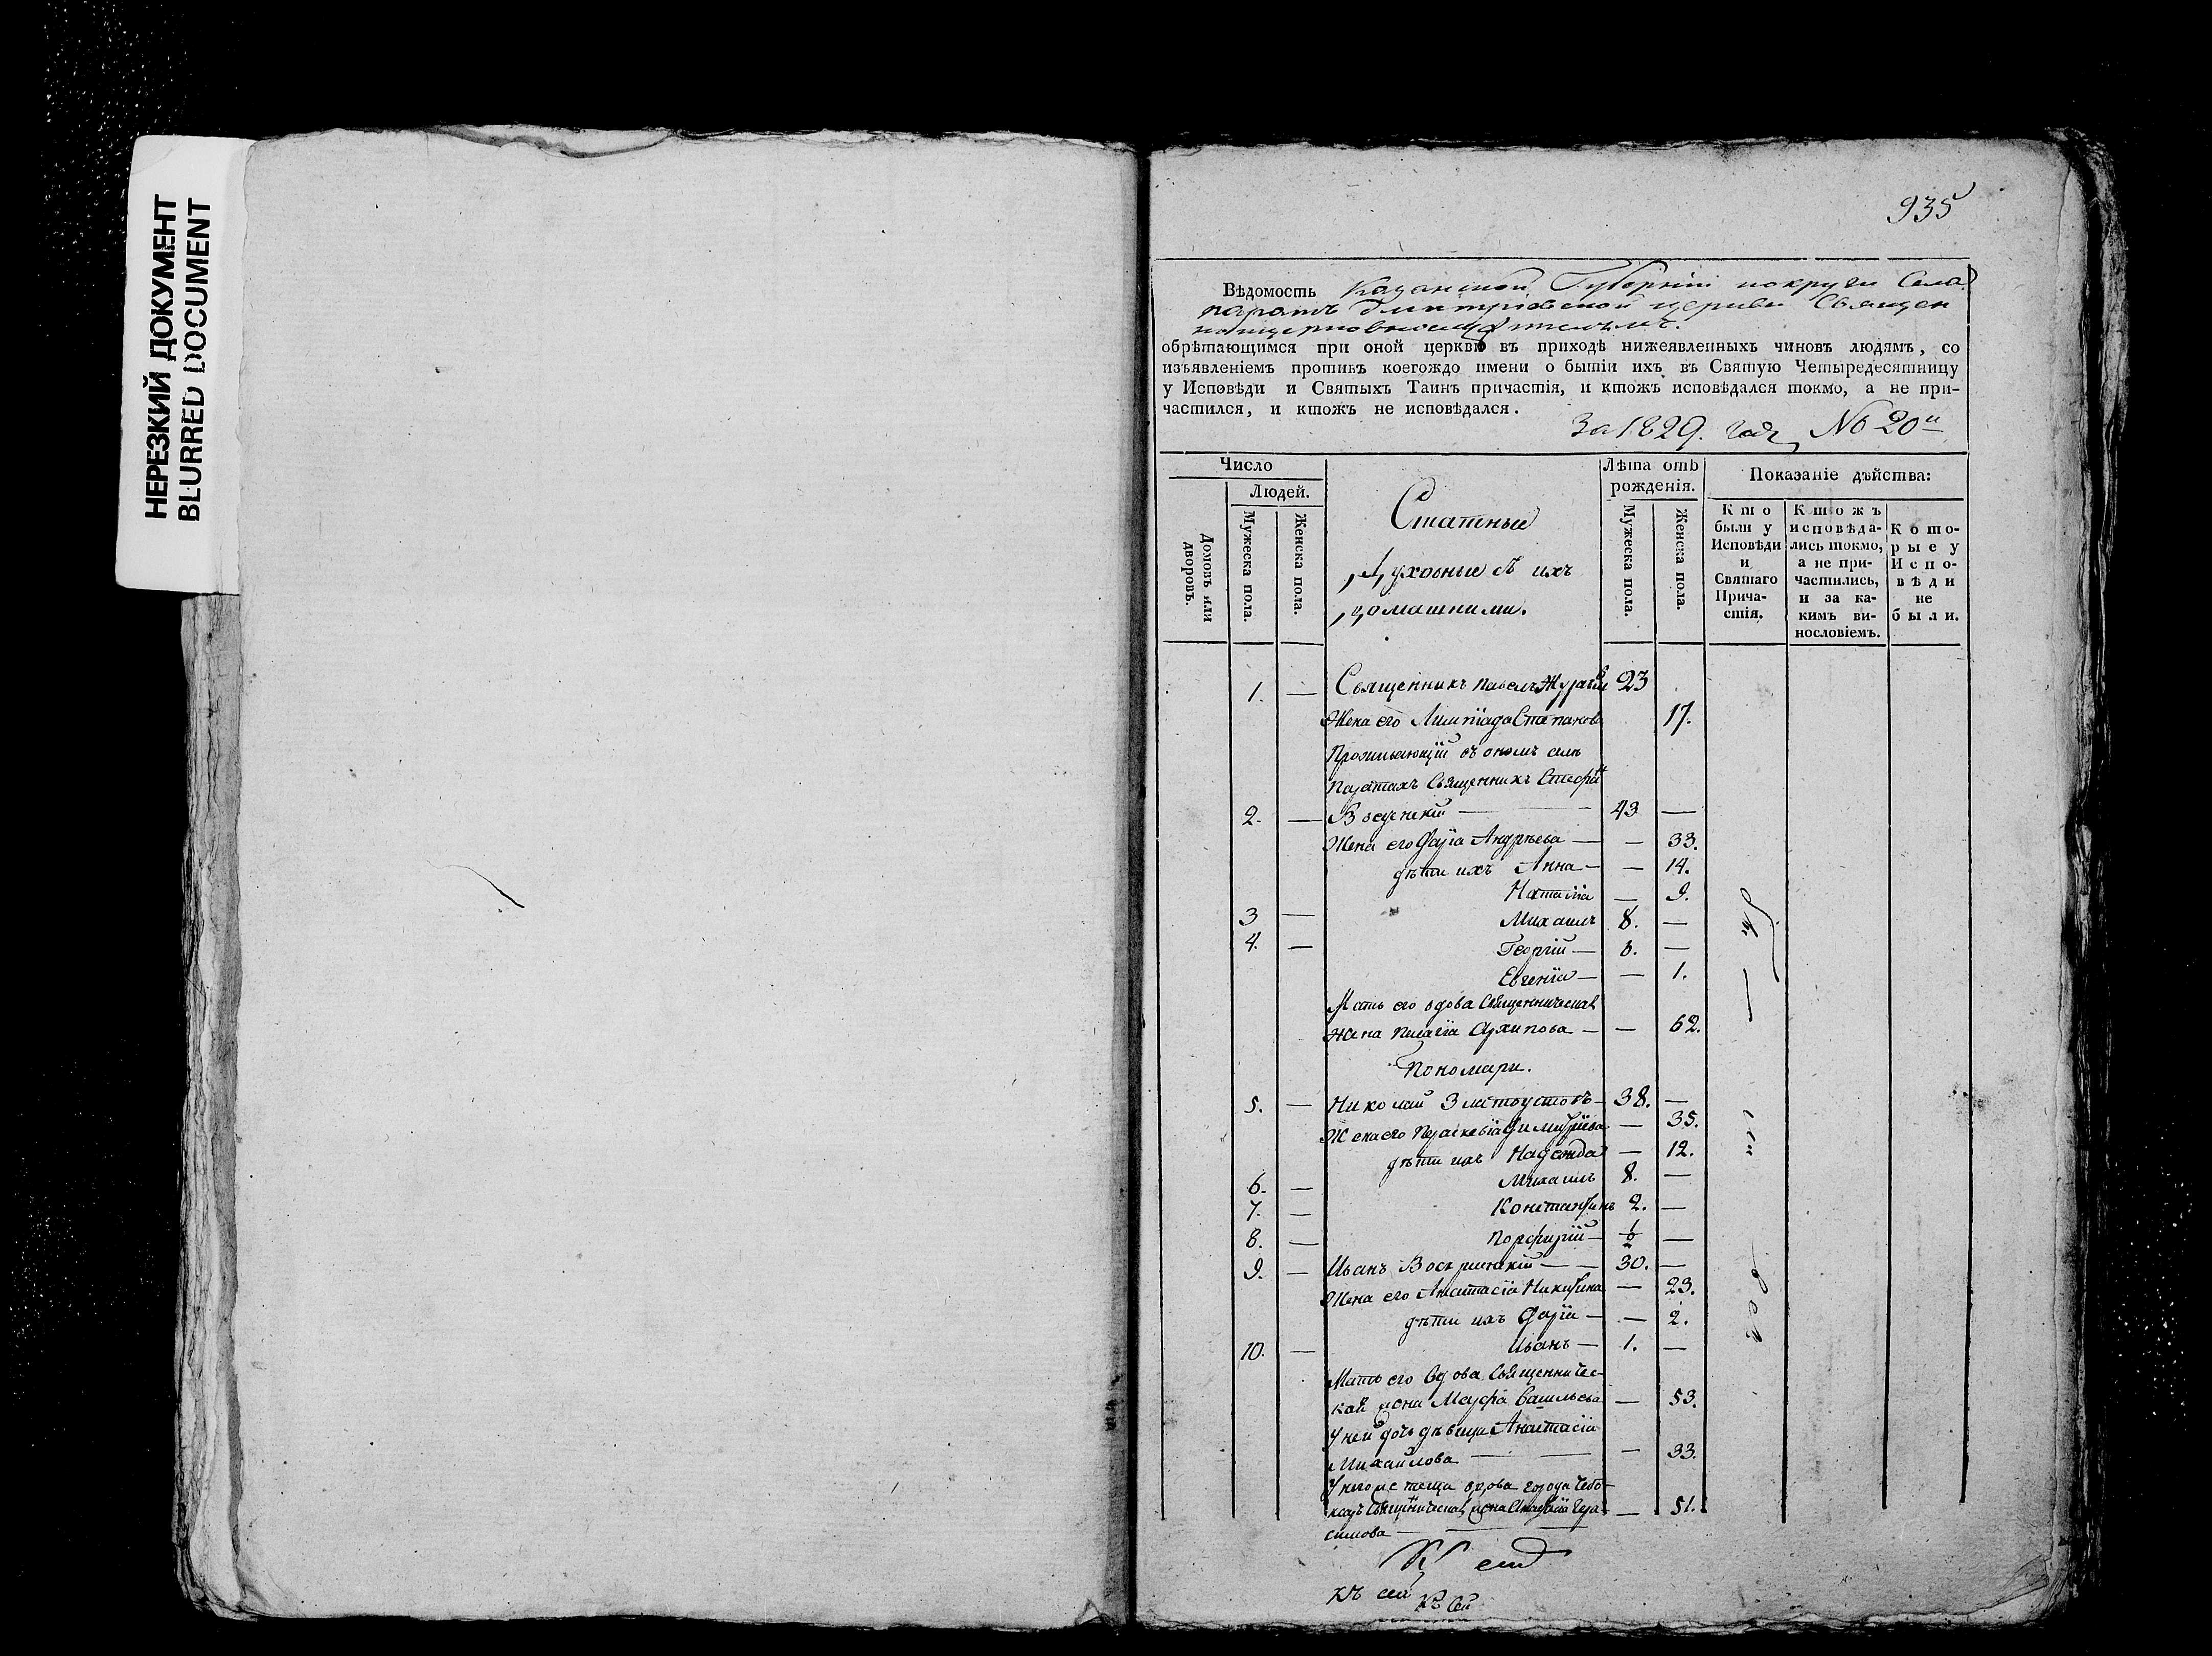 НЕРЕЗКИЙ ДОКУМЕНТ
BLURRED DOCUMENT
935
Вѣдомость Казанской Губернии округи Села
Дмитріевской церкви Священ
обрѣтающимся при оной церкви въ приходѣ нижеявленныхъ чиновъ людямъ, со
изъявленіемъ противъ коегождо имени о бытіи ихъ въ Святую Четыредесятницу
у Исповѣди и Святыхъ Таинъ причастія, и ктожъ исповѣдался токмо, а не при-
частился, и ктожъ не исповѣдался.
За 1829. годъ № 20й
Число
Людей.
Домовъ или дворовъ.
Мужеска пола.
Женска пола.
Статные
Духовные съ ихъ
домашними.
Лѣта отъ
рожденія.
Мужеска пола.
Женска пола.
Показаніе дѣйства:
Кто
были у
Исповѣди
и
Святаго
Прича-
стія.
Ктожъ
исповѣда-
лись токмо,
а не при-
частились,
и за ка-
кимъ ви-
нословіемъ.
Кото-
рые у
Испо-
вѣди
не
были.
1. — Священникъ Павелъ 23
Жена его Лимпіада Степанова 17.
Проживающій въ ономъ селѣ
Священникъ
2. — 43 —
Жена его Дарія Андрѣева — — 33.
дѣти ихъ Анна — — 14.
Наталіа — 9.
3 — Михаилъ 8. —
4. — Георгій — 6. —
Евгеніа — — 1.
Мать его вдова Священническая
Жена Пелагіа Архипова — — 62.
Пономари.
5. — Николай Златоустовъ — 38. —
Жена его Параскевіа Димитріева — 35.
дѣти ихъ Надежда — 12.
6. — Михаилъ 8. —
7. — Константинъ 2. —
8. — Порфирій — —
9. — Иванъ Воскресенскій — — 30. —
Жена его Анастасіа Никитина — 23.
дѣти ихъ Дарія — — 2.
10. — Иванъ — 1. —
Мать его Вдова Священничес-
кая жена Марфа Васильева — 53.
У ней дочь дѣвица Анастасіа
Михайлова — — 33.
У него же теща вдова города Чебо-
ксаръ Священническая жена Гера- — 51.
симова —
Къ сей
Къ сей